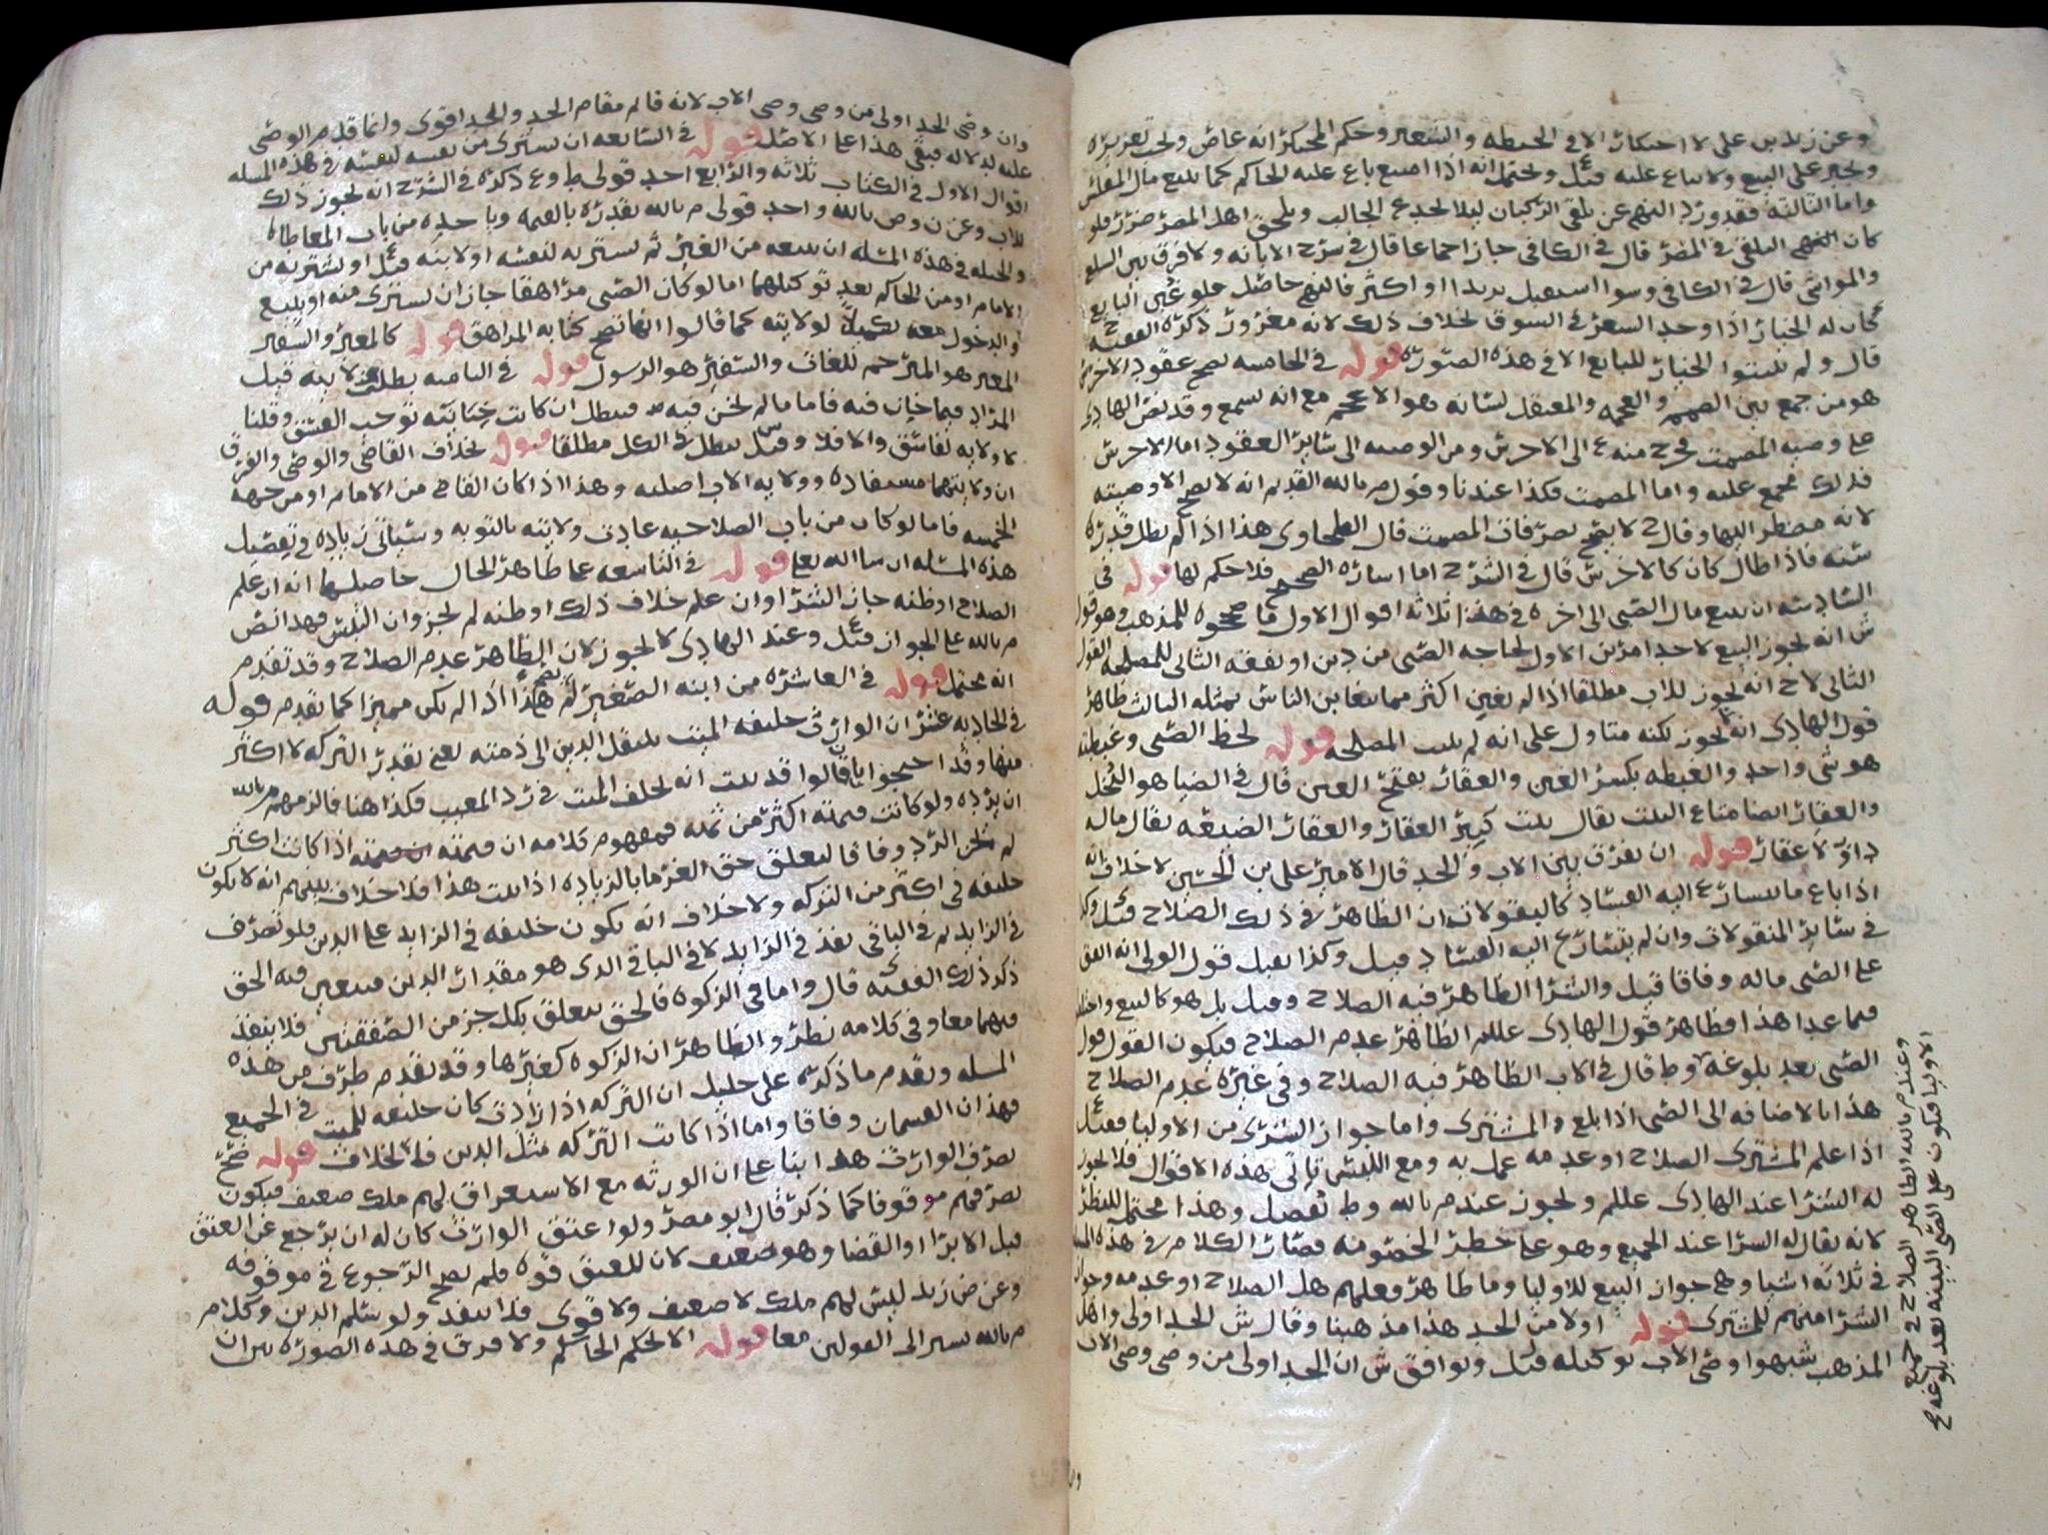 وعن زيد بن علي لا احتكار الا في الحنطه والشعير وحكم المحتكر انه عاص ويجب تعزيره
ويجبر على البيع ولا يباع عليه قيل ويحتمل انه اذا امتنع باع عليه الحاكم كما يبيع مال المفلس
واما الثالثة فقد ورد النهي عن تلقي الركبان ليلا يخدع الجالب ويلحق اهل المصر ضرر فلو
كان التلقي في المصر قال في الكافي جاز اجماعا قال في شرح الابانه ولا فرق بين السلع
والمواشي قال في الكافي وسوا استقبل بريدا او اكثر فالنهي حاصل فلو غبن البايع
كان له الخيار اذا وجد السعر في السوق بخلاف ذلك لانه مغرور ذكره الفقيه ح
قال ولم يثبتوا الخيار للبايع الا في هذه الصوره قوله في الخامسه يصح عقود الاخرس
هو من جمع بين الصمم والعجمه والمعتقل لسانه هو الاعجم مع انه يسمع وقد نص الهادي
على وصيه المصمت فخرج منه ع الى الاخرس ومن الوصيه الى سائر العقود اما الاخرس
فذلك مجمع عليه واما المصمت فكذا عندنا وقول م بالله القديم انه لا يصح الا وصيته
لانه مضطر اليها وقال ح لا يصح تصرفات المصمت قال الطحاوي هذا اذا لم يطل قدره
سنه فاذا طال كان كالاخرس قال في الشرح اما اشاره الصحيح فلا حكم لها قوله في
السادسه ان يبيع مال الصبي الى اخره في هذا ثلاثه اقوال الاول ما صححوه للمذهب وهو قول
ش انه يجوز البيع لاحد امرين الاول لحاجه الصبي من دين او نفقه الثاني للمصلحه القول
الثاني لاح انه يجوز للاب مطلقا اذا لم يغبن اكثر مما يتغابن الناس بمثله الثالث ظاهر
قول الهادي انه يجوز لكنه متاول على انه لم يثبت المصلحه قوله لحظ الصبي وغبطته
هو شي واحد والغبطه بكسر الغين والعقار بفتح العين قال في الضيا هو النخل
والعقار ايضا متاع البيت يقال بيت كبير العقار والعقار الضيعه يقال ماله
دار ولا عقار قوله ان يفرق بين الاب والجد قال الامير علي بن الحسين لا خلاف انه
اذا باع ما يسارع اليه الفساد كالبقولات ان الظاهر في ذلك الصلاح قيل وكذا
في سائر المنقولات وان لم يتسارع اليه الفساد قيل وكذا يقبل قول الولي انه انفق
على الصبي ماله وفاقا قيل والشرا الظاهر فيه الصلاح وقيل بل هو كالبيع
فيما عدا هذا فظاهر قول الهادي عللم الظاهر عدم الصلاح فيكون القول قول
الصبي بعد بلوغه وط قال في الاب الظاهر فيه الصلاح وفي غيره عدم الصلاح
هذا بالاضافه الى الصبي اذا بلغ والمشتري واما جواز الشرى من الاوليا فقيل
اذا علم المشتري الصلاح او عدمه عمل به ومع اللبس تاتي هذه الاقوال فلا يجوز
له الشرا عند الهادي عللم ويجوز عند م بالله وط تفصل وهذا محتمل للنظر
لانه يقال له الشرا عند الجميع وهو على خطر الخصومه فصار الكلام في هذه
في ثلاثه اشيا وهي جواز البيع للاوليا وما ظاهر فعلهم هل الصلاح او عدمه وجواز
الشرا منهم للمشتري قوله اولا من الجد هذا مذهبنا وقال ش الجد اولى واهل
المذهب شبهوا وصي الاب بوكيله قيل ويوافق ش ان الجد اولى من وصي وصي الاب
وعند م بالله الظاهر الصلاح في جميع
الاوليا فيكون على الصبي البينه بعد بلوغه ح
وان وصي الجد اولى من وصي وصي الاب لانه قائم مقام الجد والجد اقوى وانما قدم الوصي
عليه لدلاله فبقي هذا على الاصل قوله في السابعه ان يشتري من نفسه لنفسه في هذه المسله
اقوال الاول في الكتاب ثلاثه والرابع احد قولي ط وع ذكره في الشرح انه يجوز ذلك
للاب وعن ن وص بالله واحد قولي م بالله بقدره بالقيمه وياخده من باب المعاطاه
والحيله في هذه المسله ان يبيعه من الغير ثم يشتريه لنفسه او لابنه قيل او يشتريه من
الامام او من الحاكم بعد توكيلهما اما لو كان الصبي مراهقا جاز ان يشتري منه او يبيع
والدخول معه تكميلا لولايته كما قالوا انها تصح كتابه المراهق قوله كالمعبر والسفير
المعبر هو المترجم للغات والسفير هو الرسول قوله في الثامنه بطلت ولايته قيل
المراد فيما خان فيه فاما ما لم يخن فيه فيبطل ان كانت خيانته توجب الفسق وقلنا
لا ولايه لفاسق والا فلا وقيل س يبطل في الكل مطلقا قوله بخلاف القاضي والوصي والفرق
ان ولايتهما مستفاده وولايه الاب اصليه وهذا اذا كان القاضي من الامام او من جهه
الخمسه فاما لو كان من باب الصلاحيه عادت ولايته بالتوبه وسياتي زياده في تفصيل
هذه المسله ان شا الله تعلى قوله في التاسعه عما ظاهر الحال حاصلها انه ان علم
الصلاح او ظنه جاز الشرا وان علم خلاف ذلك او ظنه لم يجز وان التبس فهذا نص
م بالله على الجواز قيل وعند الهادي لا يجوز لان الظاهر عدم الصلاح وقد تقدم
انه محتمل قوله في العاشره من ابنه الصغير لم يصح هذا اذا لم يكن مميزا كما تقدم قوله
في الحاديه عشر ان الوارث خليفه الميت ينتقل الدين الى ذمته يعني بقدر التركه لا اكثر
منها وقد احتجوا بان قالوا قد ثبت انه يخلف الميت في رد المعيب فكذا هنا فالزمهم م بالله
ان يرده ولو كانت قيمته اكثر من ثمنه فمفهوم كلامه ان قيمته اذا كانت اكثر
لم يجز الرد وفاقا لتعلق حق الغرما بالزياده اذا ثبت هذا فلا خلاف بينهم انه لا يكون
خليفه في اكثر من التركه ولا خلاف انه يكون خليفه في الزايد على الدين فلو تصرف
في الزايد ثم في الباقي نفذ في الزايد لا في الباقي الذي هو مقدار الدين فيتعين فيه الحق
ذكر ذلك الفقيه ى قال واما في الزكوه فالحق يتعلق بكل جز من الصفقتين فلا ينفذ
فيهما معا وفي كلامه نظر والظاهر ان الزكوه كغيرها وقد تقدم طرف من هذه
المسله وتقدم ما ذكره علي خليل ان التركه اذا زادت كان خليفه للميت في الجميع
فهذان القسمان وفاقا واما اذا كانت التركه مثل الدين فله الخلاف قوله صح
تصرف الوارث هذا بنا على ان الورثه مع الاستغراق لهم ملك ضعيف فيكون
تصرفهم موقوفا كما ذكر قال ابو مضر ولو اعتق الوارث كان له ان يرجع عن العتق
قبل الابرا او القضا وهو ضعيف لان للعتق قوه فلم يصح الرجوع في موقوفه
وعن ض زيد ليس لهم ملك لا ضعيف ولا قوي فلا ينفذ ولو سلم الدين وكلام
م بالله يشير الى القولين معا قوله الا بحكم الحاكم ولا فرق في هذه الصوره بين ان